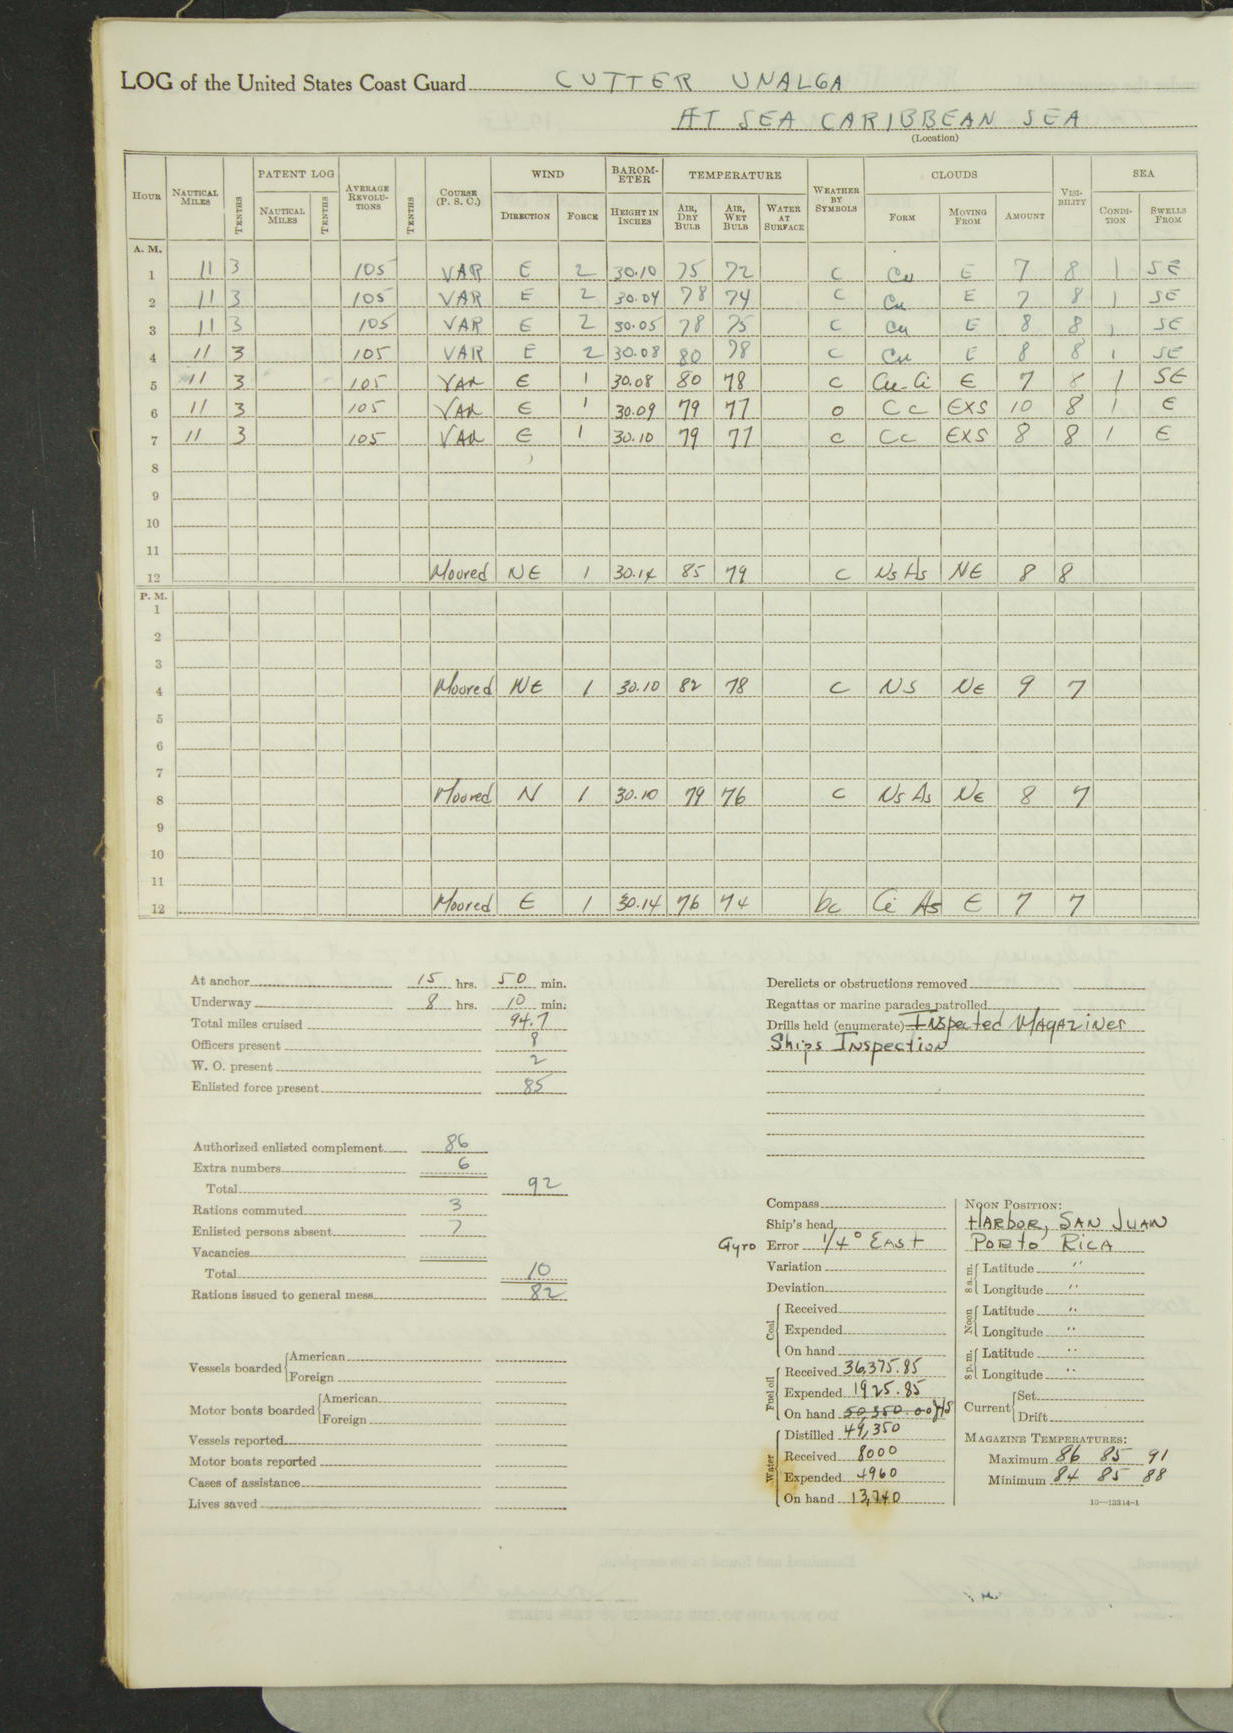 LOG of the United States Coast Guard CUTTER UNALGA
AT SEA CARIBBEAN SEA
(Location)
HOUR NAUTICAL MILES TENTHS PATENT LOG NAUTICAL MILES TENTHS AVERAGE REVOLUTIONS TENTHS COURSE (P. S. C.) WIND DIRECTION FORCE BAROMETER HEIGHT IN INCHES TEMPERATURE AIR, DRY BULB AIR, WET BULB WATER AT SURFACE WEATHER BY SYMBOLS CLOUDS FORM MOVING FROM AMOUNT VISIBILITY SEA CONDITION SWELLS FROM
A. M.
1 11 3 105 VAR E 2 30.10 75 72 C Cu E 7 8 1 SE
2 11 3 105 VAR E 2 30.04 78 74 C Cu E 7 8 1 SE
3 11 3 105 VAR E 2 30.05 78 75 C Cu E 8 8 1 SE
4 11 3 105 VAR E 2 30.08 80 78 C Cu E 8 8 1 SE
5 11 3 105 VAR E 1 30.08 80 78 C Cu-Ci E 7 8 1 SE
6 11 3 105 VAR E 1 30.09 79 77 O Cc EXS 10 8 1 E
7 11 3 105 VAR E 1 30.10 79 77 C Cc EXS 8 8 1 E
8
9
10
11
12 Moored NE 1 30.14 85 79 C Ns As NE 8 8
P. M.
1
2
3
4 Moored NE 1 30.10 82 78 C NS NE 9 7
5
6
7
8 Moored N 1 30.10 79 76 C Ns As NE 8 7
9
10
11
12 Moored E 1 30.14 76 74 bc Ci As E 7 7
At anchor 15 hrs. 50 min.
Underway 8 hrs. 10 min.
Total miles cruised 94.7
Officers present 8
W. O. present 2
Enlisted force present 85
Authorized enlisted complement 86
Extra numbers 6
Total 92
Rations commuted 3
Enlisted persons absent 7
Vacancies
Total 10
Rations issued to general mess 82
Vessels boarded American
Foreign
Motor boats boarded American
Foreign
Vessels reported
Motor boats reported
Cases of assistance
Lives saved
Derelicts or obstructions removed
Regattas or marine parades patrolled
Drills held (enumerate) Inspected Magazines
Ships Inspection
Compass
Ship's head
Gyro Error 1/4° EAST
Variation
Deviation
Coal Received
Expended
On hand
Fuel oil Received 36,375.85
Expended 1925.85
On hand 50,350.00
Water Distilled 49,350
Received 8000
Expended 4960
On hand 13,740
NOON POSITION:
HARBOR, SAN JUAN
PORTO RICA
8 a. m. Latitude "
Longitude "
Noon Latitude "
Longitude "
8 p. m. Latitude "
Longitude "
Current Set
Drift
MAGAZINE TEMPERATURES:
Maximum 86 85 91
Minimum 84 85 88
16—13314-1